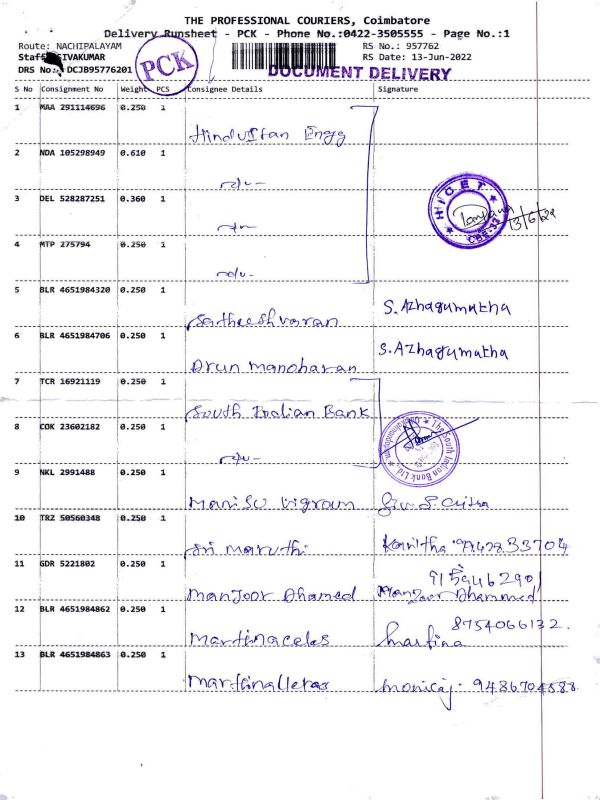 THE PROFESSIONAL COURIERS, Coimbatore
Delivery Runsheet - PCK - Phone No.:0422-3505555 - Page No.:1
Route: NACHIPALAYAM RS No.: 957762
RS Date: 13-Jun-2022
DRS No.: DCJB95776201
PCK
DOCUMENT DELIVERY
S No Consignment No Weight PCS Consignee Details Signature
1 MAA 291114696 0.250 1
Hindustan Engg
2 NDA 105298949 0.610 1
3 DEL 528287251 0.360 1
HICET
CBE-32
13/6/22
4 MTP 275794 0.250 1
5 BLR 4651984320 0.250 1
Satheeshvaran S. Azhagumutha
6 BLR 4651984706 0.250 1
Arun manoharan S. Azhagumutha
7 TCR 16921119 0.250 1
South Indian Bank
8 COK 23602182 0.250 1
The South Indian Bank Ltd.
9 NKL 2991488 0.250 1
10 TRZ 50560348 0.250 1
Sri maruthi Kavitha
11 GDR 5221802 0.250 1
Manjoor Dhamed
12 BLR 4651984862 0.250 1
8754066132
Martina
13 BLR 4651984863 0.250 1
9486704588